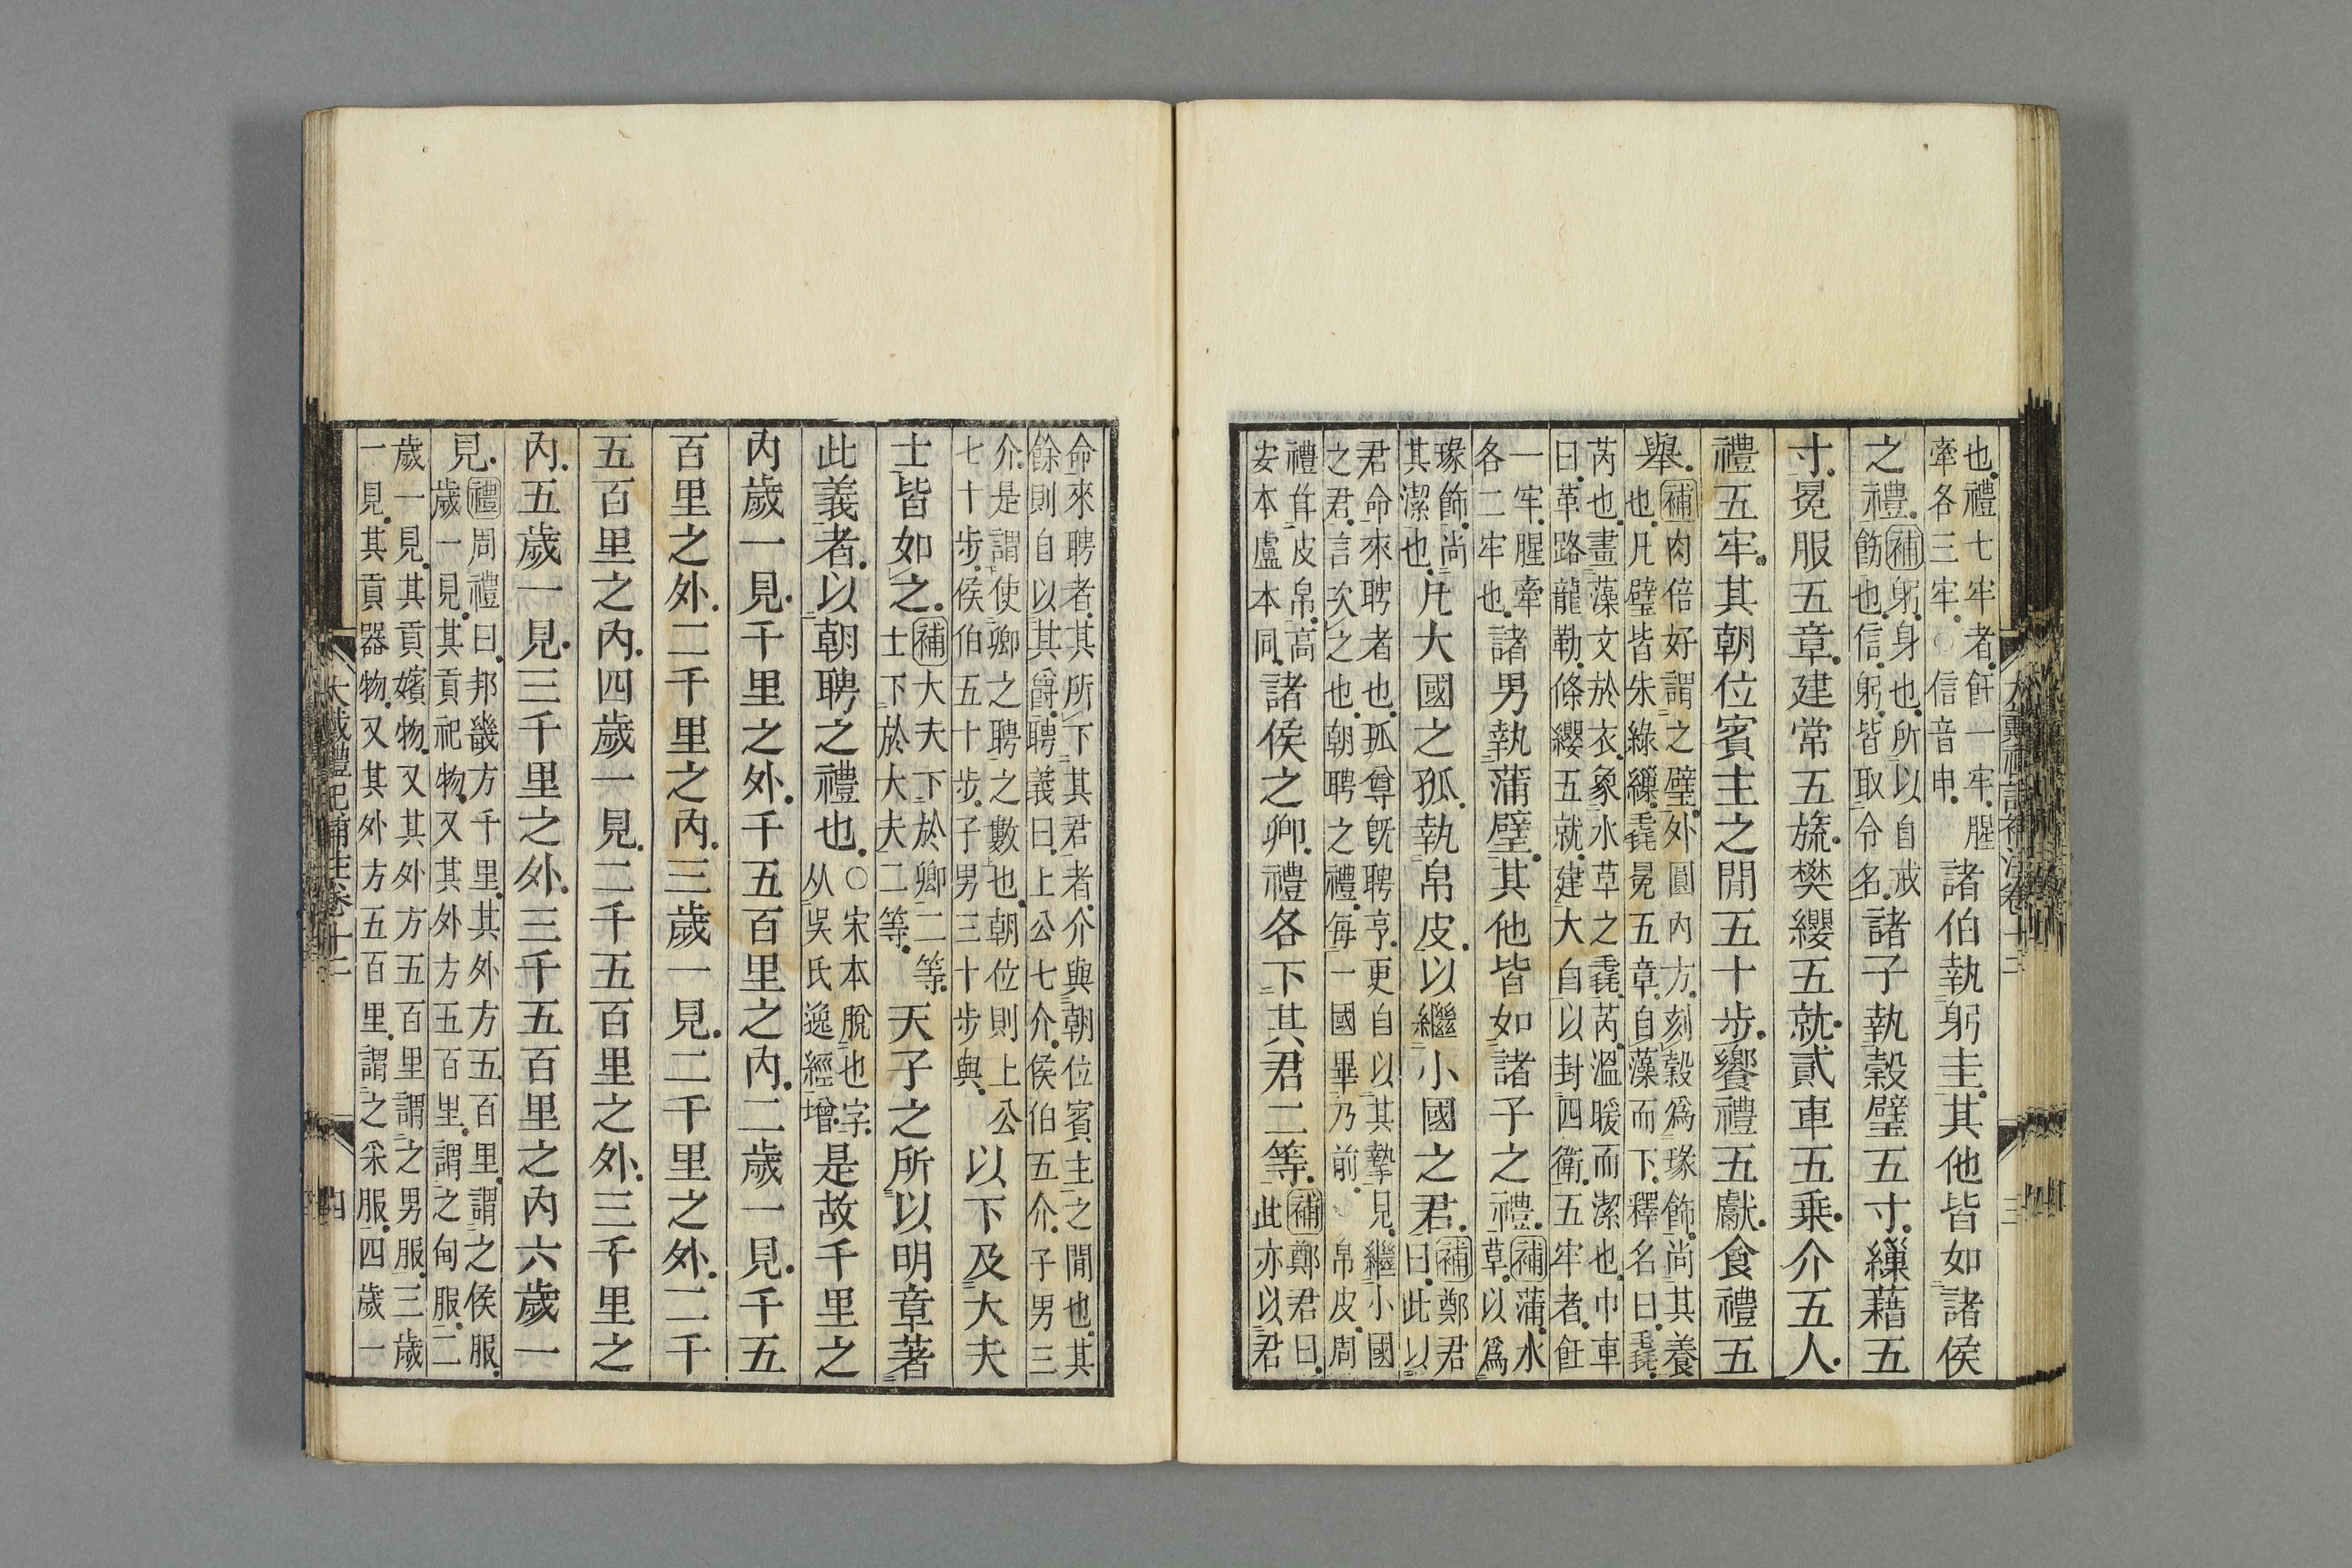 也禮七牢者飪一牢腥
牽各三牢○信音申
諸伯執躬圭其他皆如諸侯
之禮
補躬身也所以自戒
飭也信躬皆取令名
諸子執穀璧五寸繅藉五
寸冕服五章建常五旒樊纓五就貳車五乘介五人
禮五牢其朝位賓主之閒五十步饗禮五獻食禮五
舉
補肉倍好謂之璧外圓內方刻穀爲瑑飾尚其養
也凡璧皆朱綠繅毳冕五章自藻而下釋名曰毳
芮也畫藻文於衣象水草之毳芮溫暖而潔也巾車
曰革路龍勒條纓五就建大白以封四衛五牢者飪
一牢腥牽
各二牢也
諸男執蒲璧其他皆如諸子之禮
補蒲水
草以爲
瑑飾尚
其潔也
凡大國之孤執帛皮以繼小國之君
補鄭君
曰此以
君命來聘者也孤尊旣聘亨更自以其摯見繼小國
之君言次之也朝聘之禮每一國畢乃前 帛皮周
禮作皮帛高
安本盧本同
諸侯之卿禮各下其君二等
補鄭君曰
此亦以君
命來聘者其所下其君者介與朝位賓主之閒也其
餘則自以其爵聘義曰上公七介侯伯五介子男三
介是謂使卿之聘之數也朝位則上公
七十步侯伯五十步子男三十步與
以下及大夫
士皆如之
補大夫下於卿二等
士下於大夫二等
天子之所以明章著
此義者以朝聘之禮也
○宋本脫也字
从吳氏逸經增
是故千里之
內歲一見千里之外千五百里之內二歲一見千五
百里之外二千里之內三歲一見二千里之外二千
五百里之內四歲一見二千五百里之外三千里之
內五歲一見三千里之外三千五百里之內六歲一
見
禮周禮曰邦畿方千里其外方五百里謂之侯服
歲一見其貢祀物又其外方五百里謂之甸服二
歲一見其貢嬪物又其外方五百里謂之男服三歲
一見其貢器物又其外方五百里謂之采服四歲一
大戴禮記補注卷十二
四